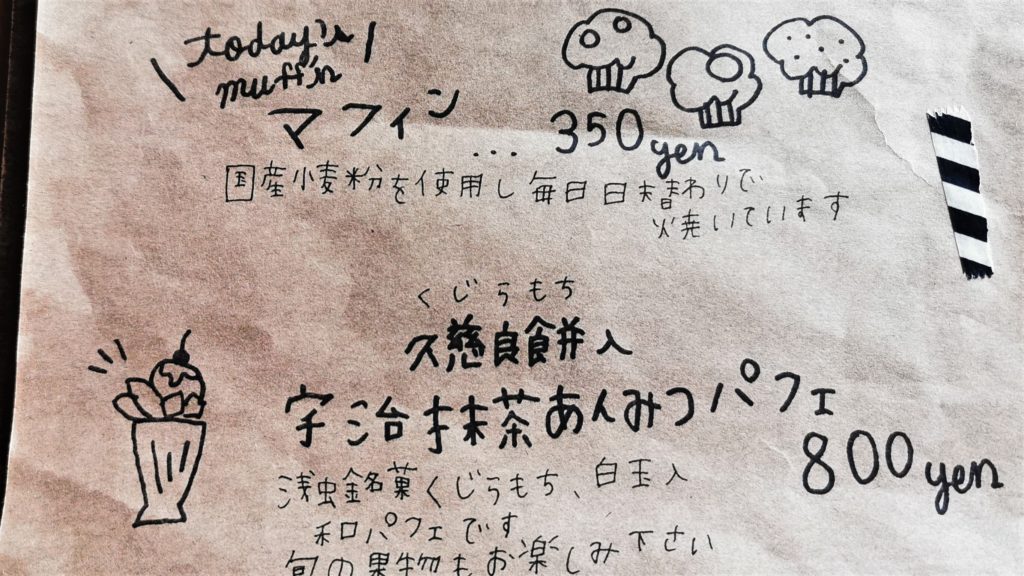 today's
muffin
マフィン ... 350yen
国産小麦粉を使用し毎日日替わりで
焼いています
くじらもち
久慈良餅入
宇治抹茶あんみつパフェ
800yen
浅虫銘菓くじらもち、白玉入
和パフェです
旬の果物もお楽しみ下さい